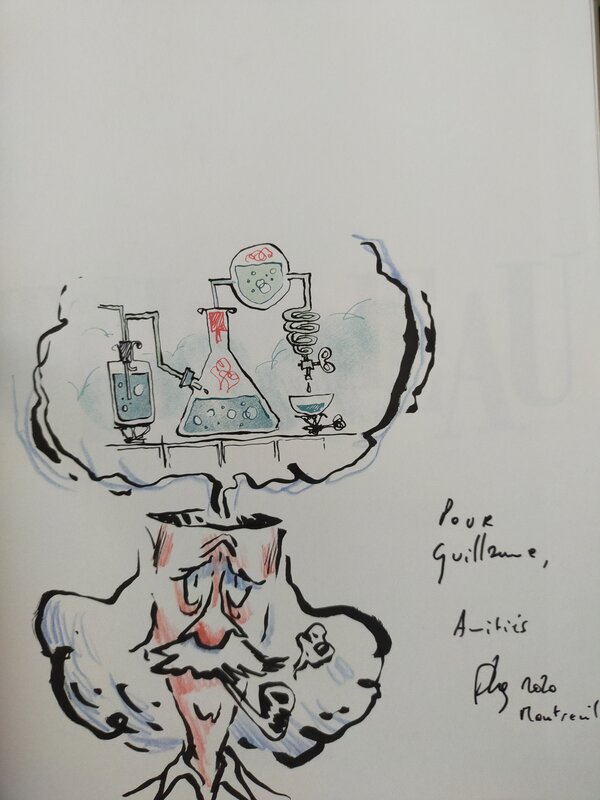 Pour
Guillaume,
Amitiés
2020
Montreuil